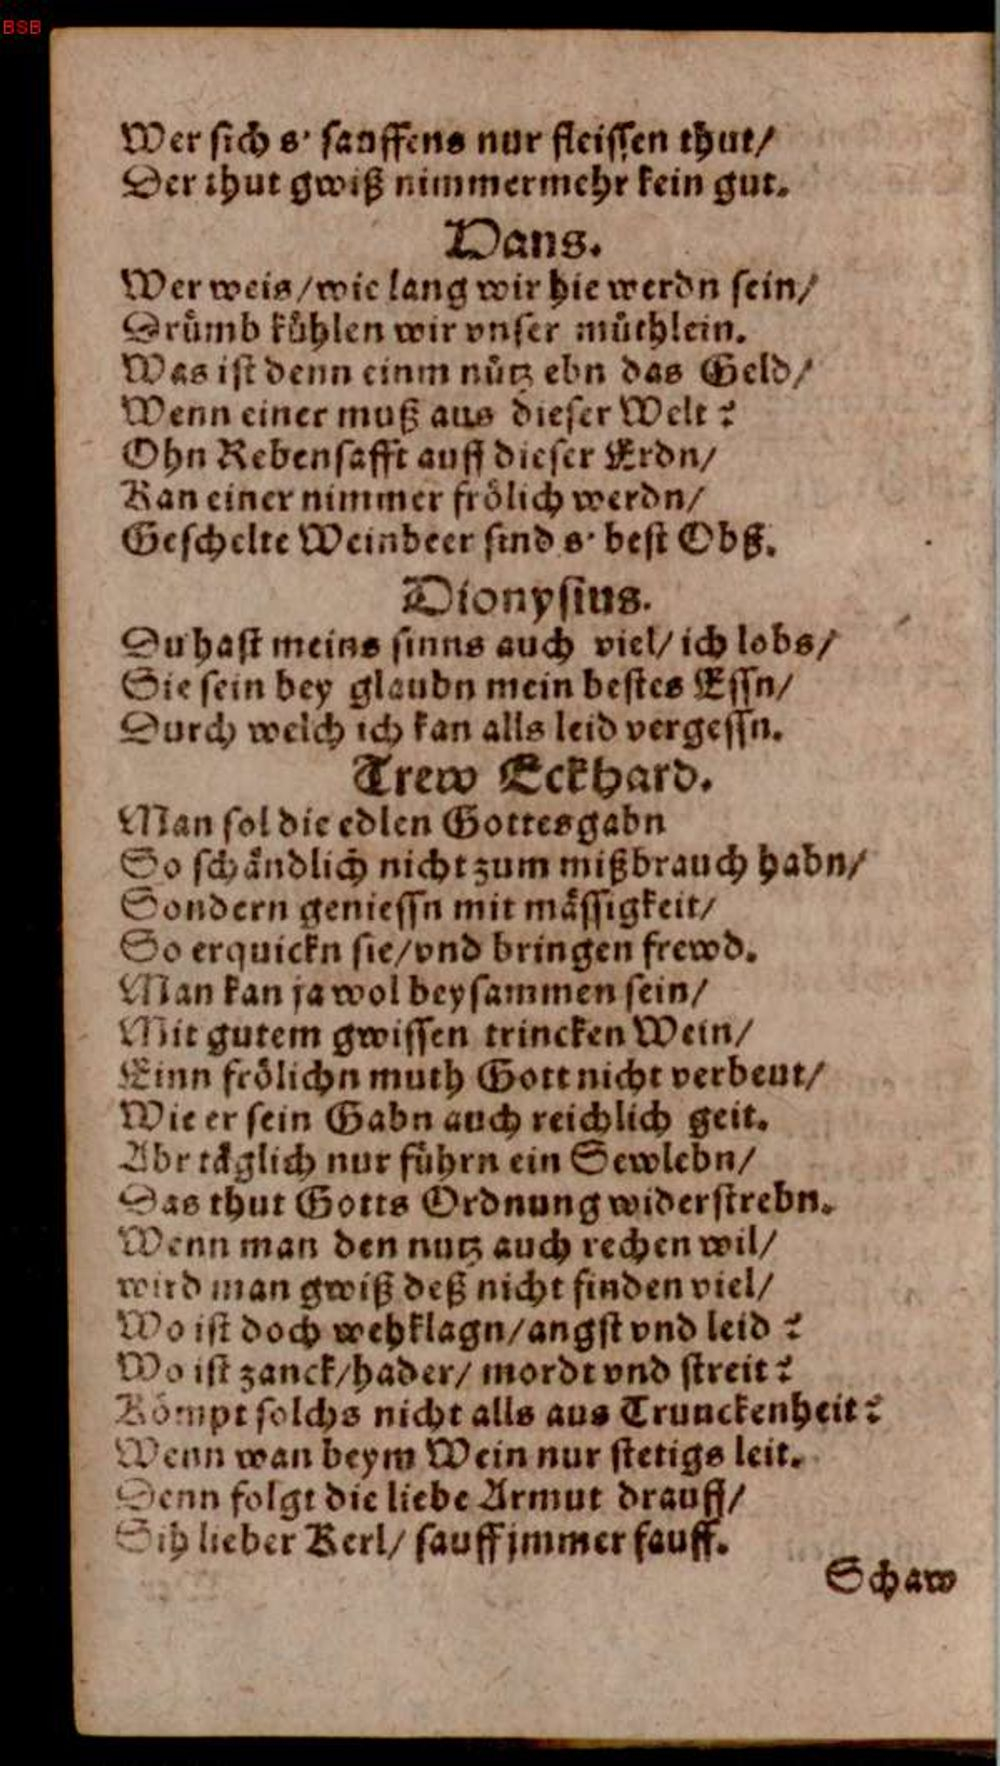 BSB
Wer sich s' sauffens nur fleissen thut/
Der thut gwiß nimmermehr kein gut.
Vans.
Wer weis/wie lang wir hie werdn sein/
Drůmb kůhlen wir vnser můthlein.
Was ist denn einm nůtz ebn das Geld/
Wenn einer muß aus dieser Welt?
Ohn Rebensafft auff dieser Erdn/
Kan einer nimmer frölich werdn/
Geschelte Weinbeer sind s' best Obß.
Dionysius.
Du hast meins sinns auch viel/ ich lobs/
Sie sein bey glaubn mein bestes Essn/
Durch welch ich kan alls leid vergessn.
Trew Eckhard.
Man sol die edlen Gottesgabn
So schändlich nicht zum mißbrauch habn/
Sondern geniessn mit mässigkeit/
So erquickn sie/vnd bringen frewd.
Man kan ja wol beysammen sein/
Mit gutem gwissen trincken Wein/
Einn frölichn muth Gott nicht verbeut/
Wie er sein Gabn auch reichlich geit.
Abr täglich nur führn ein Sewlebn/
Das thut Gotts Ordnung widerstrebn.
Wenn man den nutz auch rechen wil/
wird man gwiß deß nicht finden viel/
Wo ist doch wehklagn/angst vnd leid?
Wo ist zanck/hader/ mordt vnd streit?
Kömpt solchs nicht alls aus Trunckenheit?
Wenn wan beym Wein nur stetigs leit.
Denn folgt die liebe Armut drauff/
Sih lieber Kerl/ sauff jmmer sauff.
Schaw